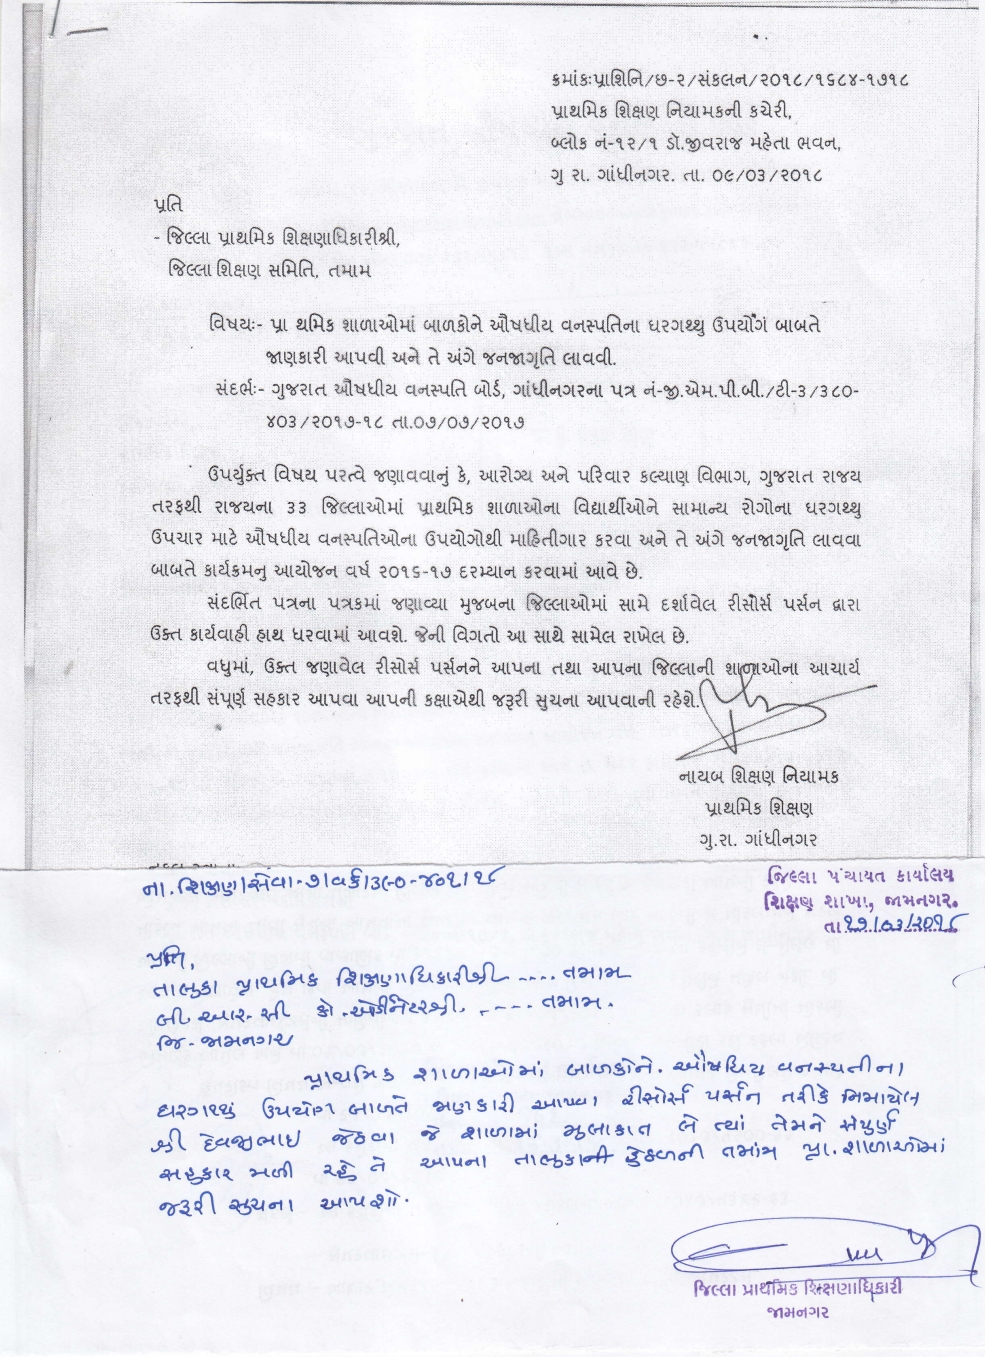 ક્રમાંકઃપ્રાશિનિ/છ-૨/સંકલન/૨૦૧૮/૧૬૮૪-૧૭૧૮
પ્રાથમિક શિક્ષણ નિયામકની કચેરી,
બ્લોક નં-૧૨/૧ ડૉ.જીવરાજ મહેતા ભવન,
ગુ રા. ગાંધીનગર. તા. ૦૯/૦૩/૨૦૧૮
પ્રતિ
- જિલ્લા પ્રાથમિક શિક્ષણાધિકારીશ્રી,
જિલ્લા શિક્ષણ સમિતિ, તમામ
વિષયઃ- પ્રા થમિક શાળાઓમાં બાળકોને ઔષધીય વનસ્પતિના ઘરગથ્થુ ઉપયોગ બાબતે
જાણકારી આપવી અને તે અંગે જનજાગૃતિ લાવવી.
સંદર્ભઃ- ગુજરાત ઔષધીય વનસ્પતિ બોર્ડ, ગાંધીનગરના પત્ર નં-જી.એમ.પી.બી./ટી-૩/૩૮૦-
૪૦૩/૨૦૧૭-૧૮ તા.૦૭/૦૭/૨૦૧૭
ઉપર્યુક્ત વિષય પરત્વે જણાવવાનું કે, આરોગ્ય અને પરિવાર કલ્યાણ વિભાગ, ગુજરાત રાજય
તરફથી રાજયના ૩૩ જિલ્લાઓમાં પ્રાથમિક શાળાઓના વિદ્યાર્થીઓને સામાન્ય રોગોના ઘરગથ્થુ
ઉપચાર માટે ઔષધીય વનસ્પતિઓના ઉપયોગોથી માહિતીગાર કરવા અને તે અંગે જનજાગૃતિ લાવવા
બાબતે કાર્યક્રમનુ આયોજન વર્ષ ૨૦૧૬-૧૭ દરમ્યાન કરવામાં આવે છે.
સંદર્ભિત પત્રના પત્રકમાં જણાવ્યા મુજબના જિલ્લાઓમાં સામે દર્શાવેલ રીસોર્સ પર્સન દ્વારા
ઉક્ત કાર્યવાહી હાથ ધરવામાં આવશે. જેની વિગતો આ સાથે સામેલ રાખેલ છે.
વધુમાં, ઉક્ત જણાવેલ રીસોર્સ પર્સનને આપના તથા આપના જિલ્લાની શાળાઓના આચાર્ય
તરફથી સંપૂર્ણ સહકાર આપવા આપની કક્ષાએથી જરૂરી સુચના આપવાની રહેશે.
નાયબ શિક્ષણ નિયામક
પ્રાથમિક શિક્ષણ
ગુ.રા. ગાંધીનગર
જિલ્લા પંચાયત કાર્યાલય
શિક્ષણ શાખા, જામનગર.
તા
પ્રતિ,
તાલુકા પ્રાથમિક શિક્ષણાધિકારીશ્રી .... તમામ
બી. આર. સી કો. ઓર્ડીનેટરશ્રી, .---- તમામ.
જિ- જામનગર
પ્રાથમિક શાળાઓમાં બાળકોને. ઔષધિય વનસ્પતીના
ઘરગથ્થું ઉપયોગ બાબતે જાણકારી આપવા રીસોર્સ પર્સન તરીકે નિમાયેલ
શ્રી દેવજીભાઇ જેઠવા જે શાળામાં મુલાકાત લે ત્યાં તેમને સંપુર્ણ
સહકાર મળી રહે તે આપના તાલુકાની હેઠળની તમામ પ્રા. શાળાઓમાં
જરૂરી સુચના આપશો.
જિલ્લા પ્રાથમિક શિક્ષણાધિકારી
જામનગર